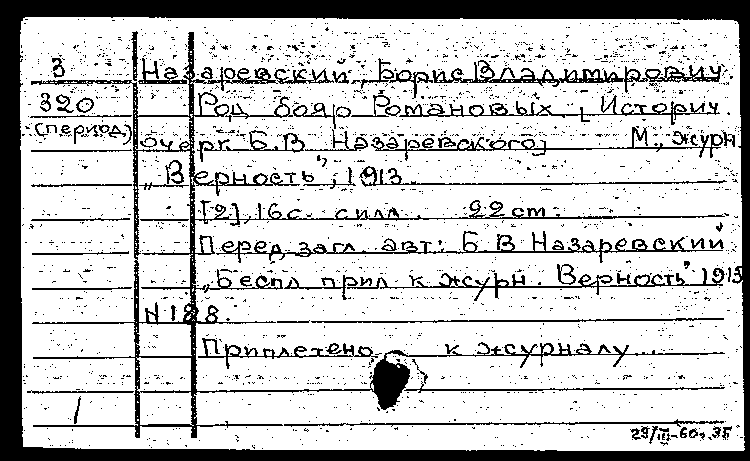 3 Назаревский, Борис Владимирович.
320 Род бояр Романовых. [Истории.
(период) очерк Б.В. Назаревского] М., журн.
„Верность", 1913.
[2], 16 с. с илл. 22 cm.
Перед загл. авт: Б. В Назаревский
„Беспл прил к журн. Верность" 1913
N 188.
Приплетено к журналу.
/
29/III-60, 35